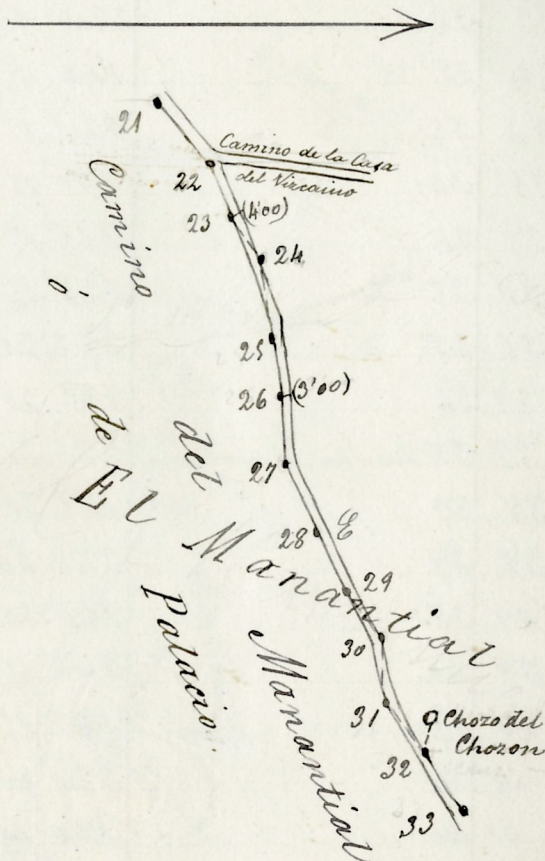 21
Camino de la Casa
del Vizcaino
22
23 (4'00)
24
25
26 (3'00)
27
28 E
29
30
31
Chozo del
Chozon
32
33
Camino del Manantial
ó
de Palacio
El Manantial